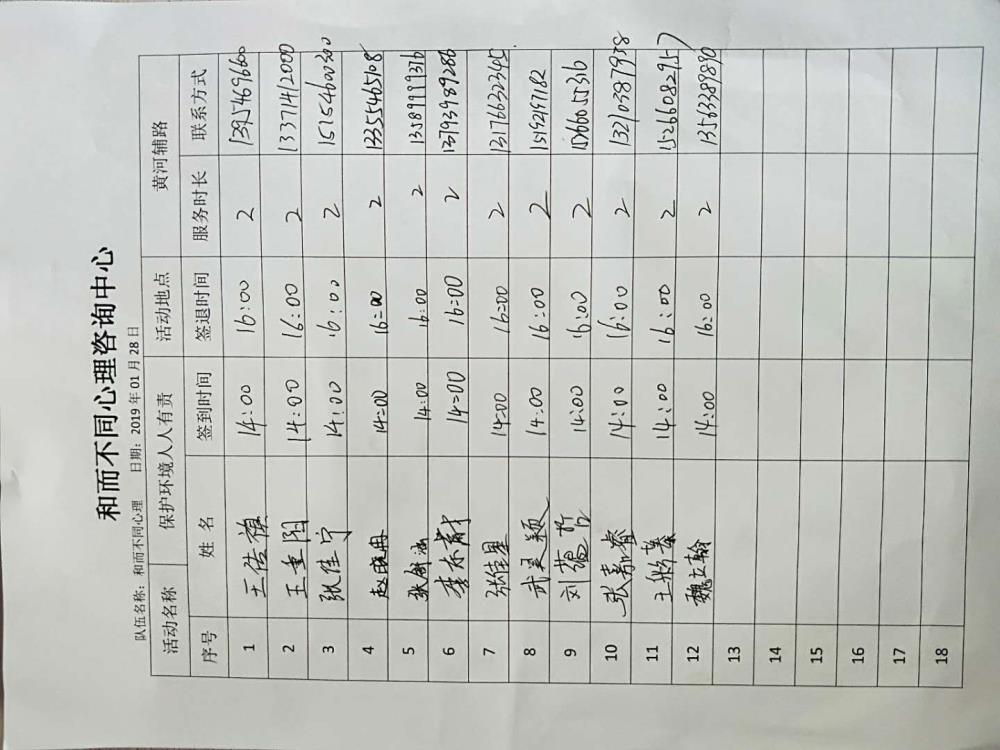 和而不同心理咨询中心
队伍名称：和而不同心理 日期：2019 年 01 月 28 日
活动名称 保护环境人人有责 活动地点 黄河辅路
序号 姓 名 签到时间 签退时间 服务时长 联系方式
1 王传禛 14:00 16:00 2 13954696600
2 王重阳 14:00 16:00 2 13371412000
3 张佳宁 14:00 16:00 2 15154604300
4 赵晓冉 14:00 16:00 2 13355465108
5 张舒涵 14:00 16:00 2 13589999376
6 李东蔚 14:00 16:00 2 13793989286
7 张佳星 14:00 16:00 2 13176632345
8 武灵颖 14:00 16:00 2 1519297182
9 刘蕴哲 14:00 16:00 2 15666055316
10 张嘉睿 14:00 16:00 2 13210387938
11 王烁蓁 14:00 16:00 2 15266082957
12 魏立翰 14:00 16:00 2 13563389890
13
14
15
16
17
18